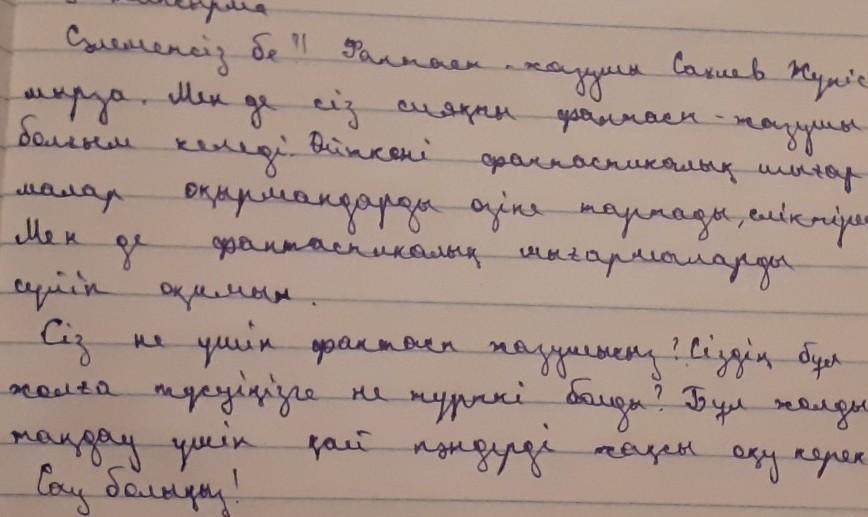 Сәлеметсіз бе!! Фантаст-жазушы Сахиев Жүніс
мырза. Мен де сіз сияқты фантаст-жазушы
болғым келеді. Өйткені фантастикалық шығар
малар оқырмандарды өзіне тартады, еліктіреді
Мен де фантастикалық шығармаларды
сүйіп оқимын.
Сіз не үшін фантаст жазушысыз? Сіздің бұл
жолға түсуіңізге не түрткі болды? Бұл жолды
таңдау үшін қай пәндерді жақсы оқу керек
Сау болыңыз!